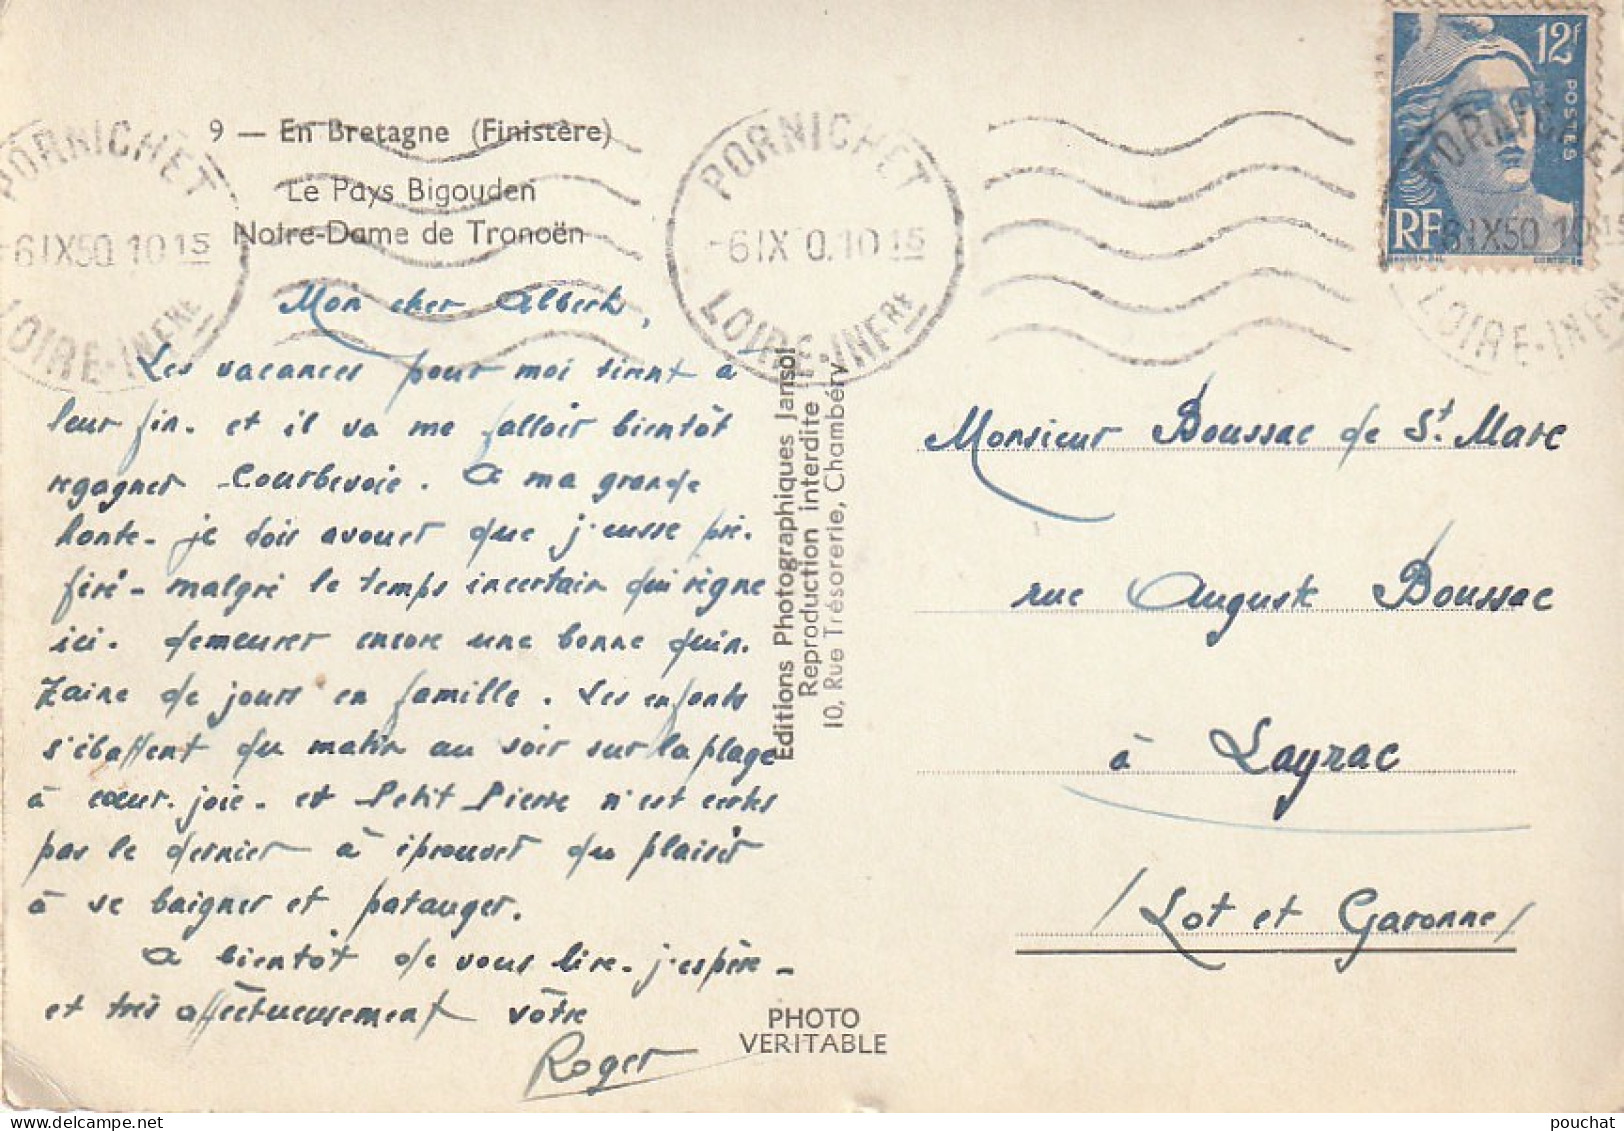 9 — En Bretagne (Finistère)
Le Pays Bigouden
Notre-Dame de Tronoën
PORNICHET
-6 IX 50. 10 15
LOIRE-INFRE
PORNICHET
-6 IX 0. 10 15
LOIRE-INFRE
12F
POSTES
RF
PORNICHET
6 IX 50 10 15
LOIRE-INFRE
Mon cher Albert,
Les vacances pour moi tirent à
leur fin. et il va me falloir bientôt
regagner Courbevoie. A ma grande
honte. je dois avouer que j'eusse pré-
féré - malgré le temps incertain qui règne
ici. demeurer encore une bonne quin-
zaine de jours en famille. Les enfants
s'ébattent du matin au soir sur la plage
à cœur. joie. et Petit Pierre n'est certes
pas le dernier à éprouver du plaisir
à se baigner et patauger.
A bientôt de vous lire. j'espère -
et très affectueusement vôtre
Roger
Editions Photographiques Jansol
Reproduction interdite
10, Rue Trésorerie, Chambéry
PHOTO
VERITABLE
Monsieur Boussac de St. Marc
rue Auguste Boussac
à Layrac
/Lot et Garonne/
pouchat - Delcampe.net